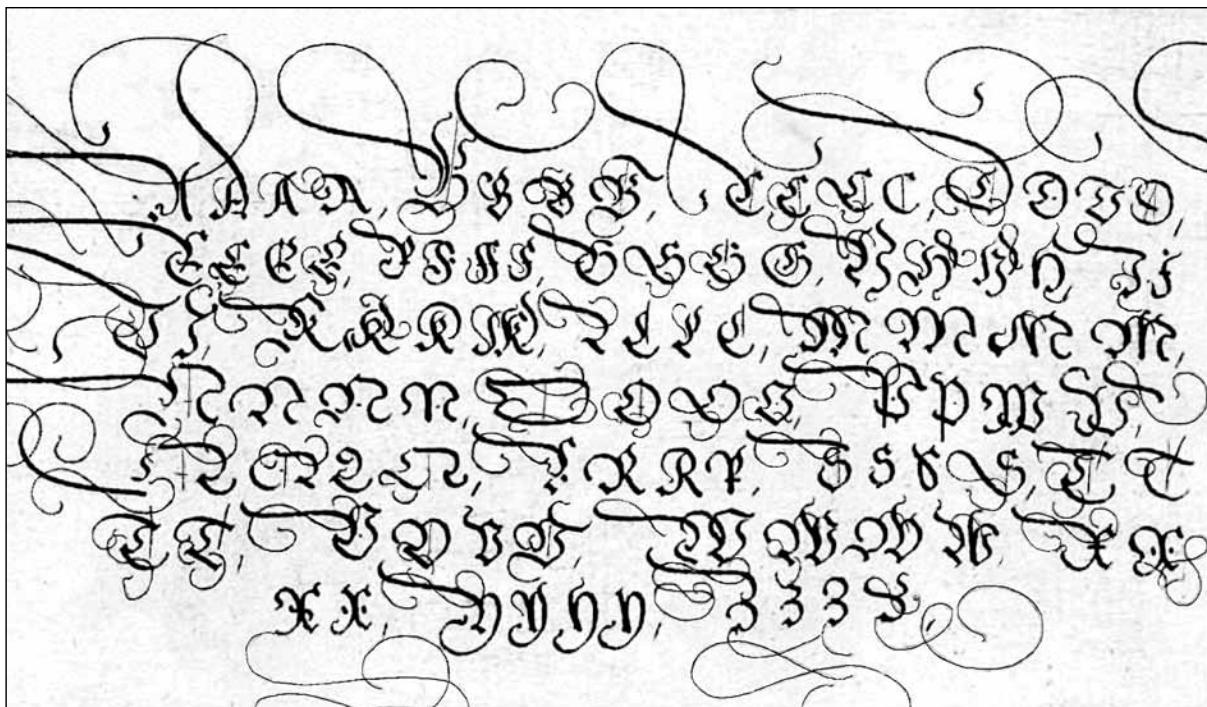 A A A A, B B B B, C C C C, D D D D,
E E E E, F F F F, G G G G, H H H H, I I
I I, K K K K, L L L L, M M M M,
N N N N, O O O O, P P P P
Q Q Q Q, R R R R, S S S S, T T
T T, V V V V, W W W W, X X
X X, Y Y Y Y, Z Z Z Z,